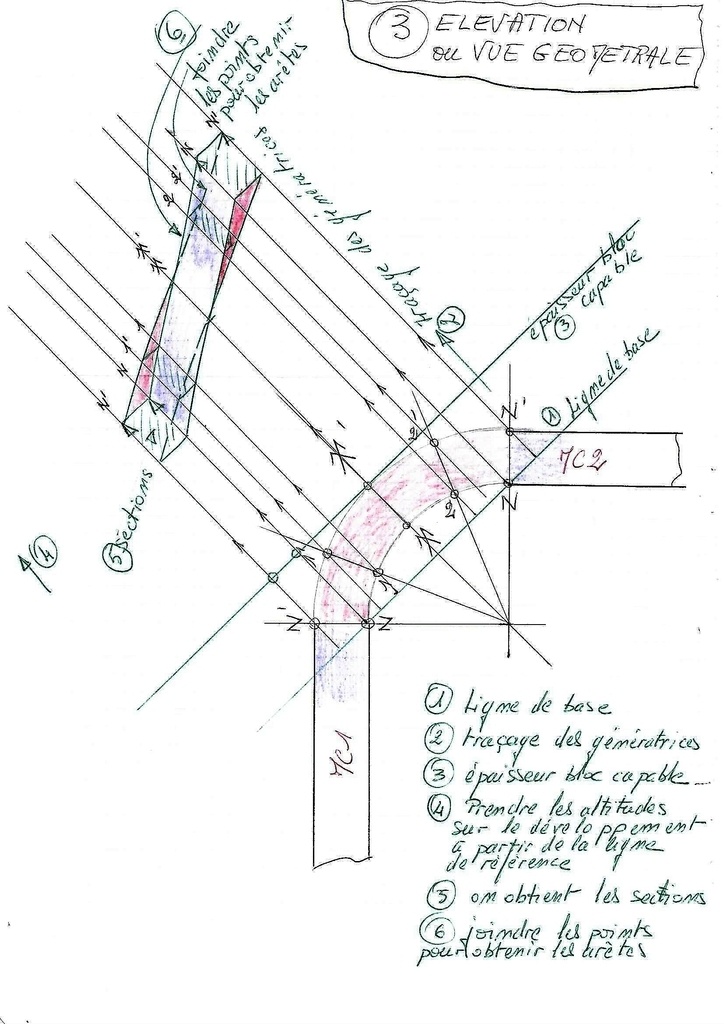 3 ELEVATION
ou VUE GEOMETRALE
6 joindre
les points
pour obtenir
les arêtes
traçage des génératrices
2
épaisseur bloc
capable
3
1 Ligne de base
N'
N
2'
2
1
N'
N
2'
2
N'
N
1'
1
N'
N
MC2
MC1
5 Sections
4
1 Ligne de base
2 traçage des génératrices
3 épaisseur bloc capable
4 Prendre les altitudes
sur le développement
à partir de la ligne
de référence
5 on obtient les sections
6 joindre les points
pour obtenir les arêtes